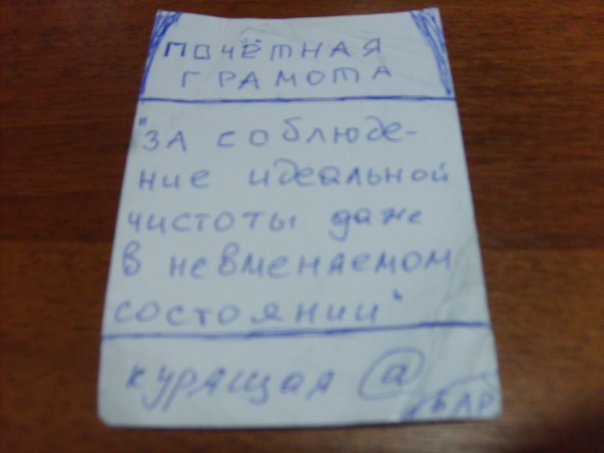 ПОЧЁТНАЯ
ГРАМОТА
"ЗА соблюде-
ние идеальной
чистоты даже
в невменяемом
состоянии"
курящая @
БАР